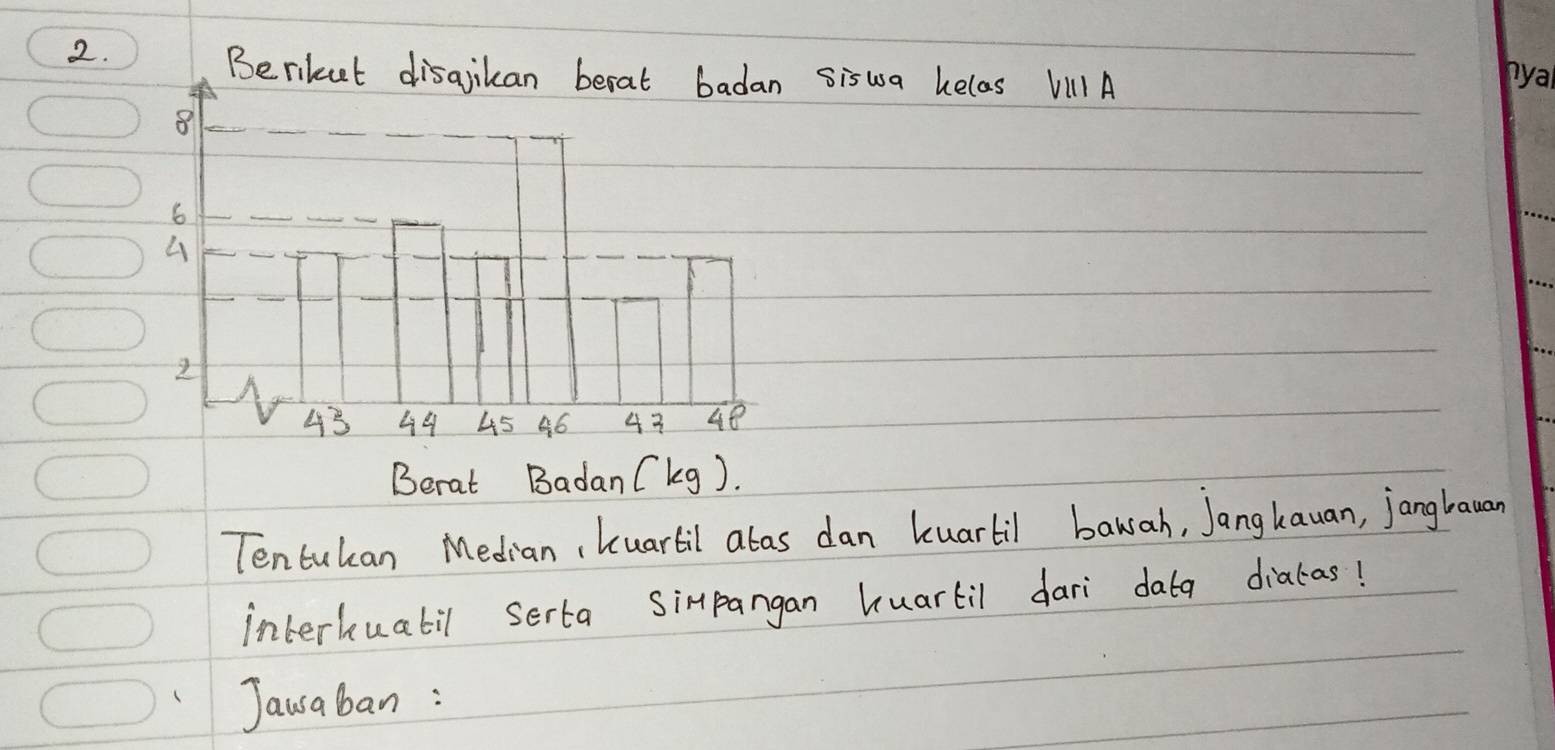 2. Berikut disajikan berat badan siswa kelas VIII A
8
6
4
2
43 44 45 46 47 48
Berat Badan (kg).
Tentukan Median, kuartil atas dan kuartil bawah, Jangkauan, jangkauan
interkuatil serta simpangan kuartil dari data diatas!
Jawaban :
nyal